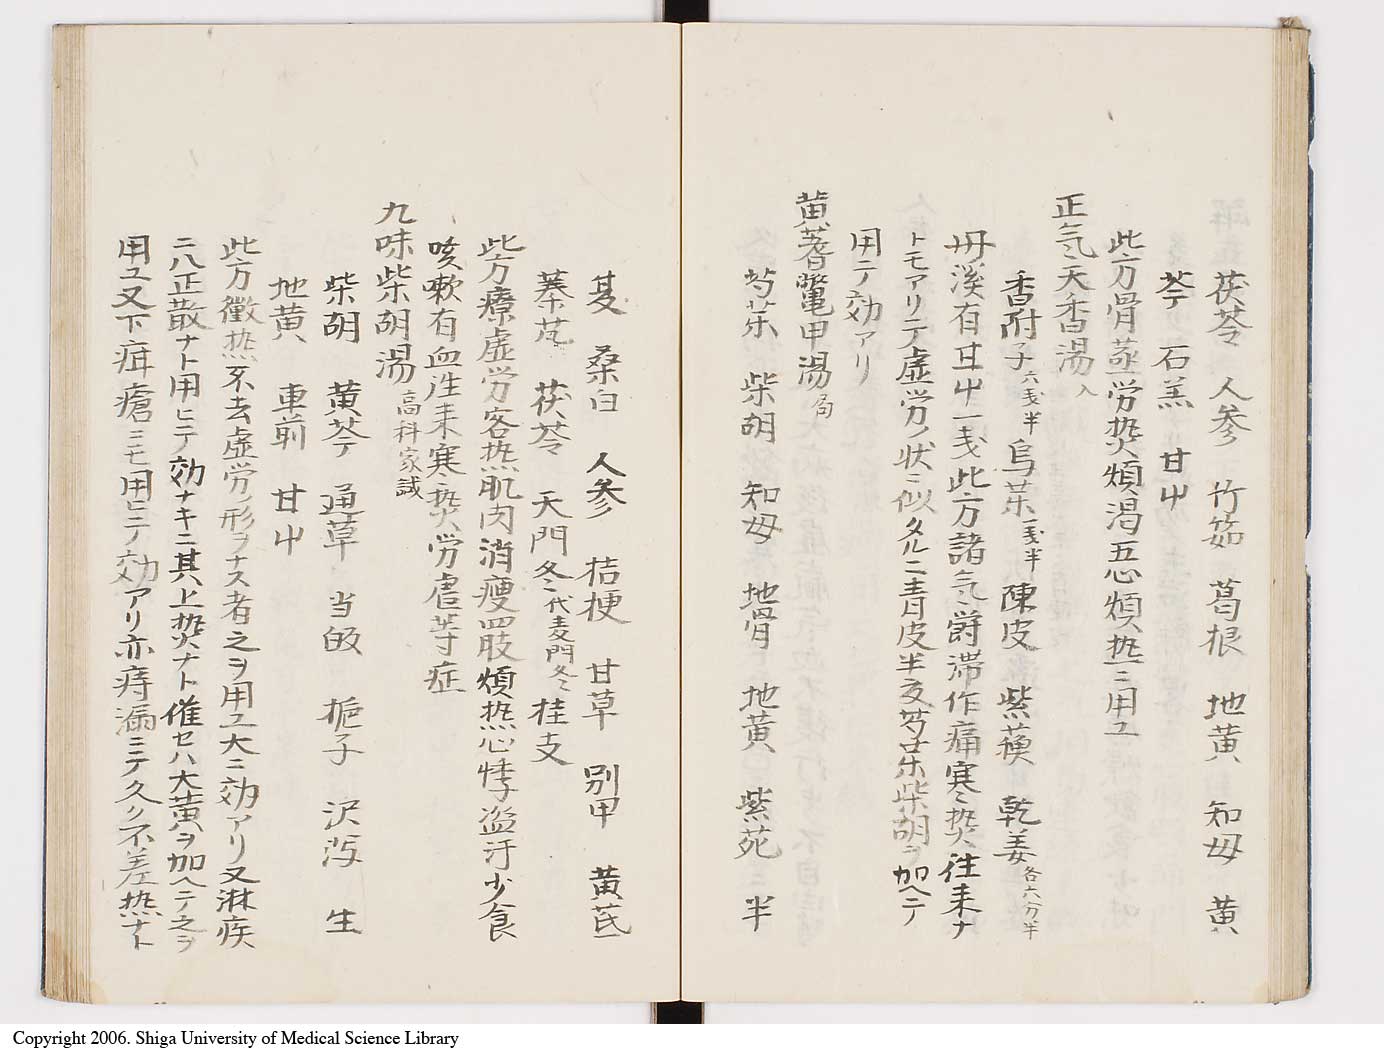 茯苓 人参 竹筎 葛根 地黄 知母 黄
芩 石羔 甘中
此方骨蒸労熱煩渇五心煩熱ニ用ユ
正気天香湯 入
香附子六戔半 烏薬一戔半 陳皮 紫蘓 乾姜各六分半
丹溪有甘中一戔此方諸気欝滞作痛寒熱往来ナ
トモアリテ虚労ノ状ニ似タルニ青皮半夏芍薬柴胡ヲ加ヘテ
用テ効アリ
黄蓍鼈甲湯 局
芍薬 柴胡 知母 地骨 地黄 紫苑 半
夏 桑白 人参 桔梗 甘草 別甲 黄芪
蓁芃 茯苓 天門冬代麦門冬 桂支
此方療虚労客熱肌肉消瘦四肢煩熱心悸盗汗少食
咳嗽有血往来寒熱労虐等症
九味柴胡湯 高科家誡
柴胡 黄芩 通草 当皈 梔子 沢泻 生
地黄 車前 甘中
此方徽熱不去虚労形ヲナス者之ヲ用ユ大ニ効アリ又淋疾
ニ八正散ナト用ヒテ効ナキニ其上熱ナト催セハ大黄ヲ加ヘテ之ヲ
用ユ又下疳瘡ニモ用ヒテ効アリ亦痔漏ニテ久ク不差熱ナト
Copyright 2006. Shiga University of Medical Science Library